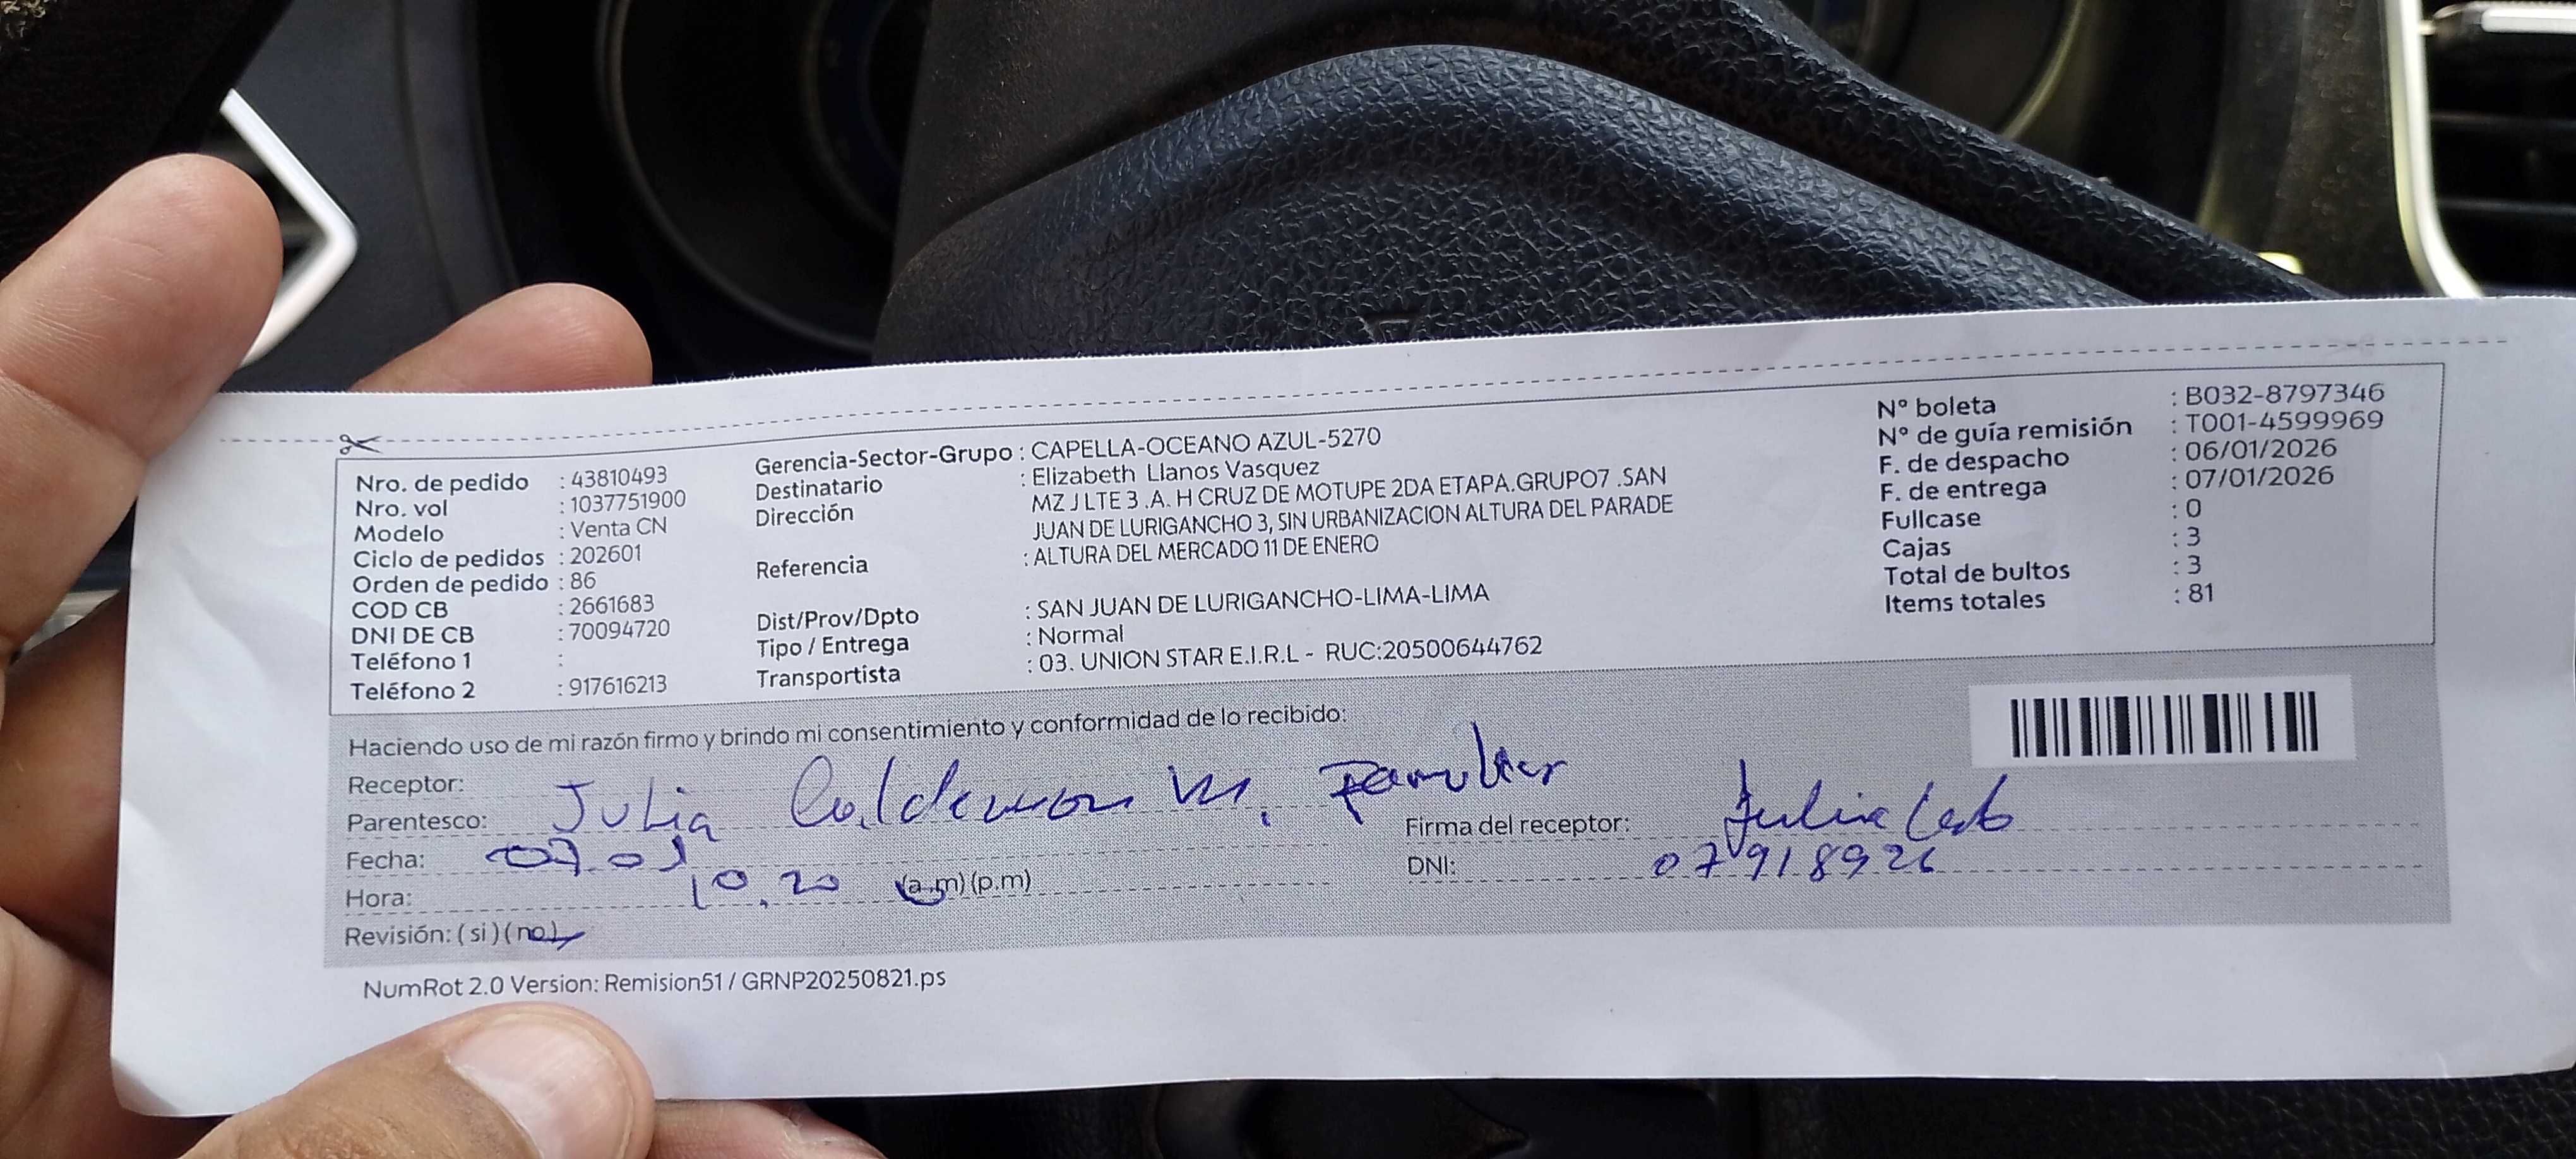 Nro. de pedido : 43810493
Nro. vol : 1037751900
Modelo : Venta CN
Ciclo de pedidos : 202601
Orden de pedido : 86
COD CB : 2661683
DNI DE CB : 70094720
Teléfono 1 :
Teléfono 2 : 917616213
Gerencia-Sector-Grupo : CAPELLA-OCEANO AZUL-5270
Destinatario : Elizabeth Llanos Vasquez
Dirección MZ J LTE 3 .A. H CRUZ DE MOTUPE 2DA ETAPA.GRUPO7 .SAN
JUAN DE LURIGANCHO 3, SIN URBANIZACION ALTURA DEL PARADE
Referencia : ALTURA DEL MERCADO 11 DE ENERO
Dist/Prov/Dpto : SAN JUAN DE LURIGANCHO-LIMA-LIMA
Tipo / Entrega : Normal
Transportista : 03. UNION STAR E.I.R.L - RUC:20500644762
N° boleta : B032-8797346
N° de guía remisión : T001-4599969
F. de despacho : 06/01/2026
F. de entrega : 07/01/2026
Fullcase : 0
Cajas : 3
Total de bultos : 3
Items totales : 81
Haciendo uso de mi razón firmo y brindo mi consentimiento y conformidad de lo recibido:
Receptor:
Parentesco: Julia Calderon M.
Fecha: 07.01
Hora: 10.20 (a.m) (p.m)
Revisión: ( si ) ( no )
Firma del receptor: Julia
DNI: 07918926
NumRot 2.0 Version: Remision51 / GRNP20250821.ps